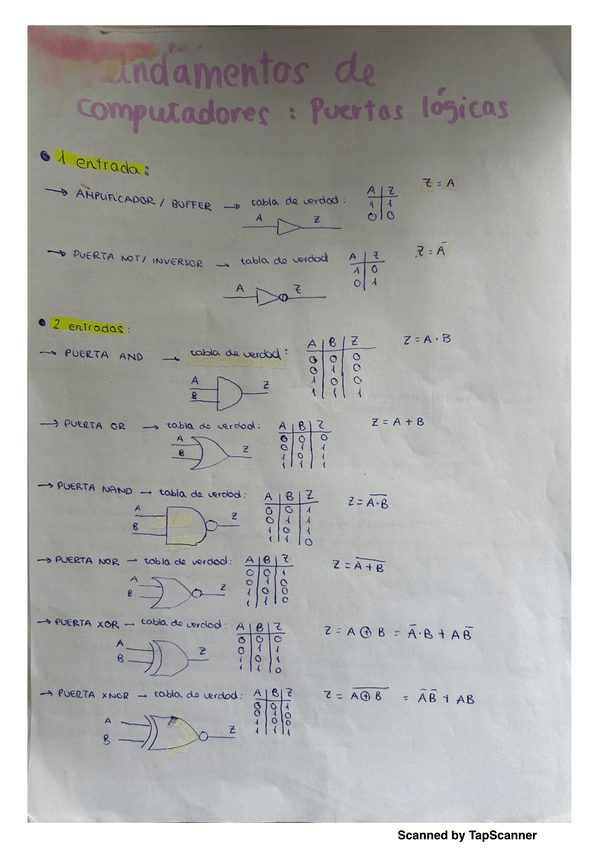 Fundamentos de
computadores : Puertas lógicas
1 entrada:
→ AMPLIFICADOR / BUFFER → tabla de verdad: A | Z Z = A
1 | 1
0 | 0
A Z
→ PUERTA NOT / INVERSOR → tabla de verdad A | Z Z = A̅
1 | 0
0 | 1
A Z
2 entradas:
→ PUERTA AND → tabla de verdad: A | B | Z Z = A · B
0 | 0 | 0
0 | 1 | 0
1 | 0 | 0
1 | 1 | 1
A
B Z
→ PUERTA OR → tabla de verdad: A | B | Z Z = A + B
0 | 0 | 0
0 | 1 | 1
1 | 0 | 1
1 | 1 | 1
A
B Z
→ PUERTA NAND → tabla de verdad: A | B | Z Z = A̅·̅B̅
0 | 0 | 1
0 | 1 | 1
1 | 0 | 1
1 | 1 | 0
A
B Z
→ PUERTA NOR → tabla de verdad: A | B | Z Z = A̅+̅B̅
0 | 0 | 1
0 | 1 | 0
1 | 0 | 0
1 | 1 | 0
A
B Z
→ PUERTA XOR → tabla de verdad: A | B | Z Z = A ⊕ B = A̅·B + AB̅
0 | 0 | 0
0 | 1 | 1
1 | 0 | 1
1 | 1 | 0
A
B Z
→ PUERTA XNOR → tabla de verdad: A | B | Z Z = A̅⊕̅B̅ = A̅B̅ + AB
0 | 0 | 1
0 | 1 | 0
1 | 0 | 0
1 | 1 | 1
A
B Z
Scanned by TapScanner